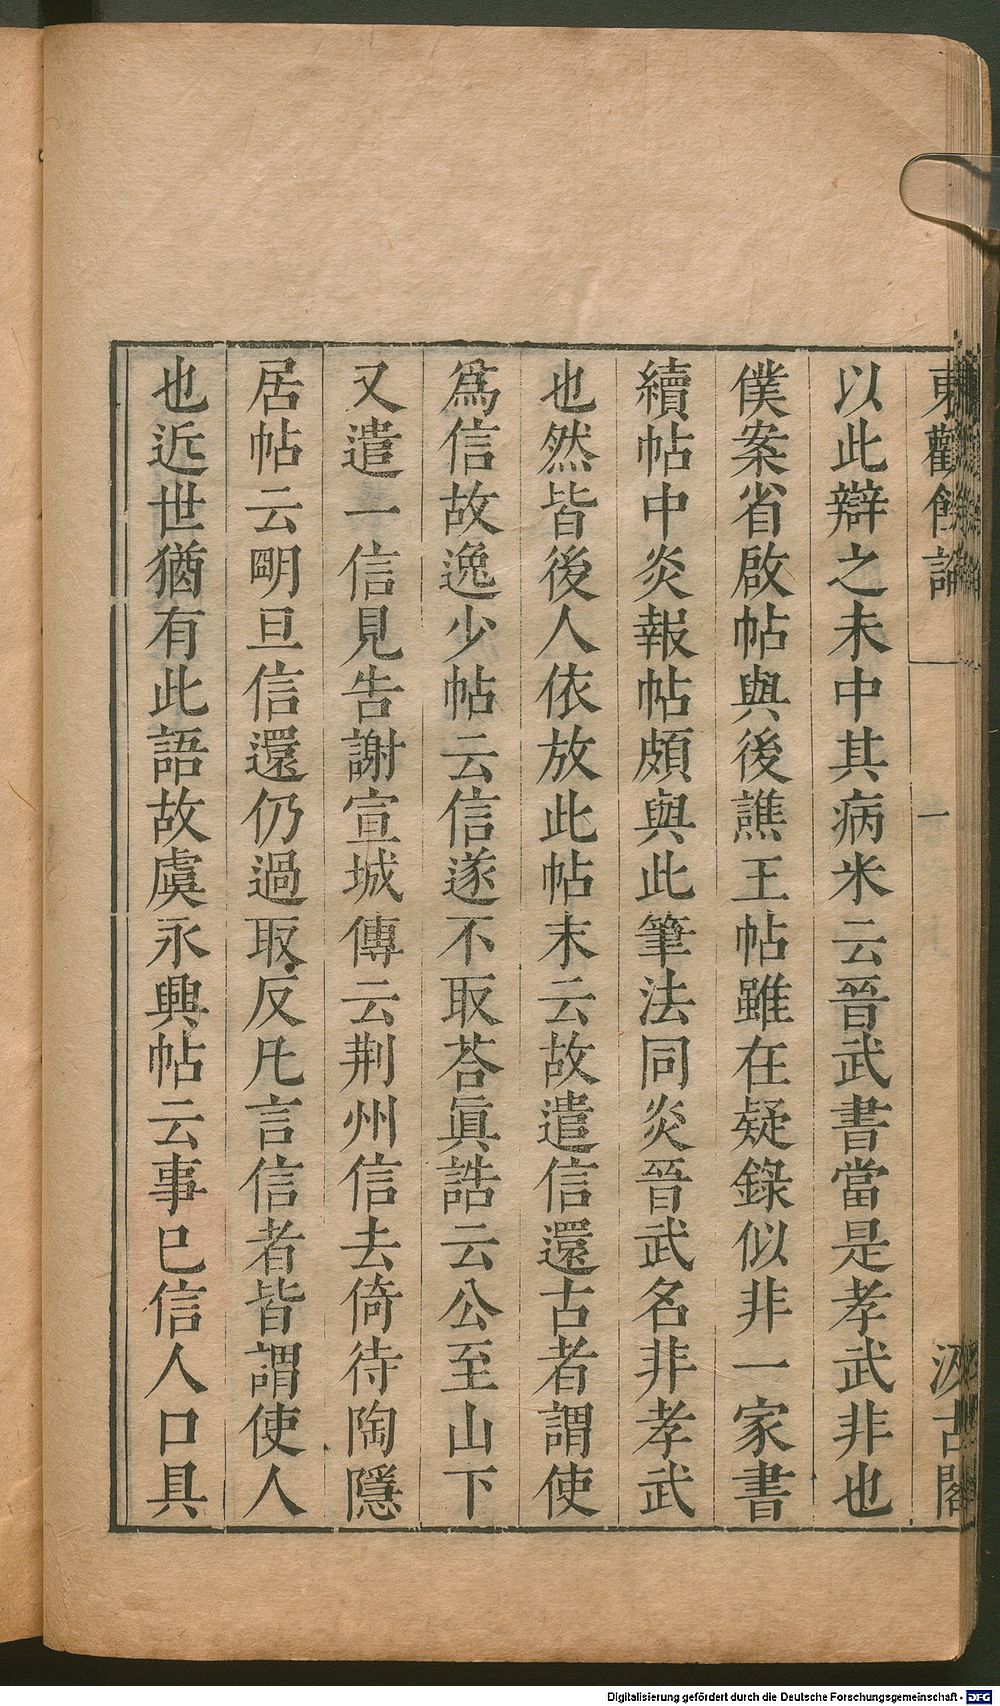 東觀餘論
一
汲古閣
以此辯之未中其病米云晉武書當是孝武非也
僕案省啟帖與後譙王帖雖在疑錄似非一家書
續帖中炎報帖頗與此筆法同炎晉武名非孝武
也然皆後人依放此帖末云故遣信還古者謂使
爲信故逸少帖云信遂不取荅眞誥云公至山下
又遣一信見告謝宣城傳云荆州信去倚待陶隱
居帖云明旦信還仍過取反凡言信者皆謂使人
也近世猶有此語故虞永興帖云事已信人口具
Digitalisierung gefördert durch die Deutsche Forschungsgemeinschaft - DFG